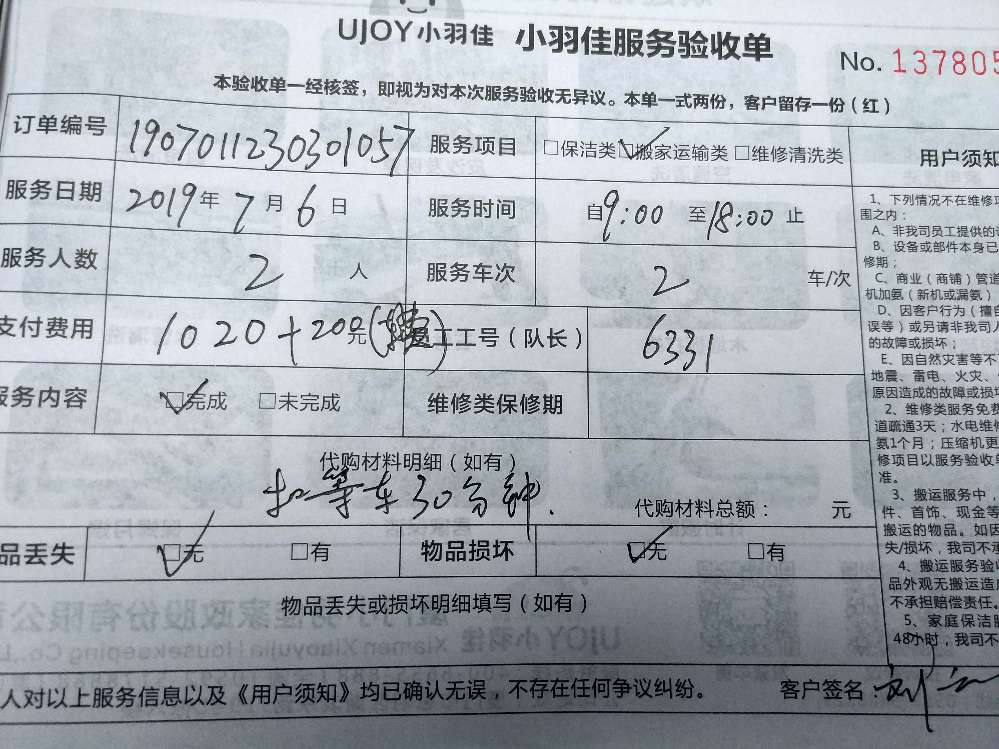 UJOY小羽佳 小羽佳服务验收单
No. 137805
本验收单一经核签，即视为对本次服务验收无异议。本单一式两份，客户留存一份（红）
订单编号 1907011230301057 服务项目 □保洁类 ☑搬家运输类 □维修清洗类
服务日期 2019年7月6日 服务时间 自9:00至18:00止
服务人数 2人 服务车次 2车/次
支付费用 1020+200元( 员工工号（队长） 6331
服务内容 ☑完成 □未完成 维修类保修期
代购材料明细（如有）
扣等车30分钟. 代购材料总额： 元
品丢失 ☑无 □有 物品损坏 ☑无 □有
物品丢失或损坏明细填写（如有）
人对以上服务信息以及《用户须知》均已确认无误，不存在任何争议纠纷。 客户签名：刘
用户须知
1、下列情况不在维修项
围之内：
A、非我司员工提供的
B、设备或部件本身已
修期；
C、商业（商铺）管道
机加氨（新机或漏氨）
D、因客户行为（擅自
误等）或另请非我司人
的故障或损坏；
E、因自然灾害等不
地震、雷电、火灾、
原因造成的故障或损坏
2、维修类服务免费
道疏通3天；水电维修
氨1个月；压缩机更
修项目以服务验收单
准。
3、搬运服务中，
件、首饰、现金等
搬运的物品。如因
失/损坏，我司不承
4、搬运服务验收
品外观无搬运造成
不承担赔偿责任。
5、家庭保洁服
48小时，我司不